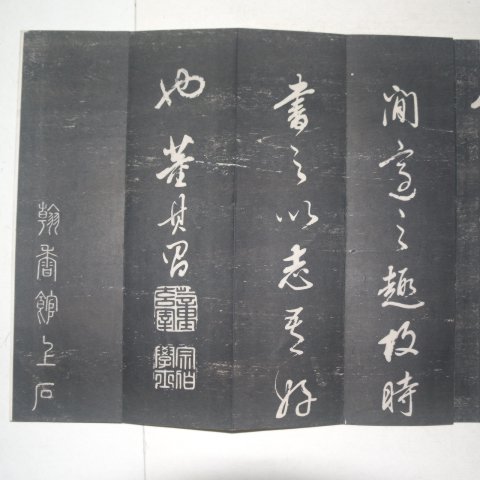 閒適之趣故時
書之以志吾好
也董其昌
翰香館上石